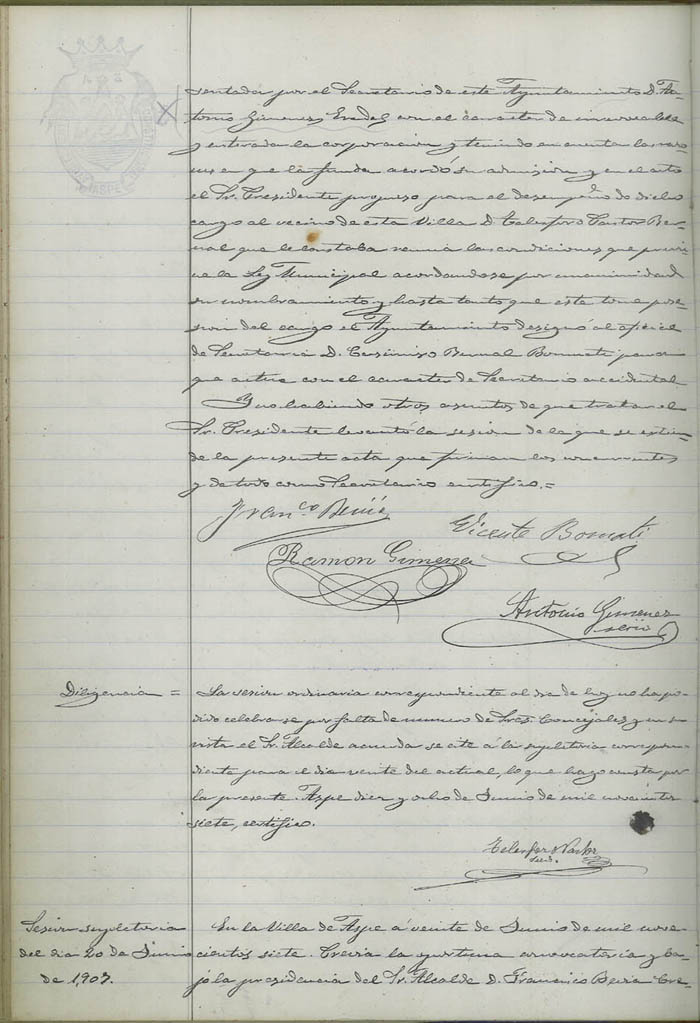 sentada por el Secretario de este Ayuntamiento D. An-
tonio Gimenez Eradez con el caracter de irrevocable
y enterada la corporacion y teniendo en cuenta las razo-
nes en que la funda acordó su admision y en el acto
el Sr. Presidente propuso para el desempeño de dicho
cargo al vecino de esta Villa D. Telesforo Pastor Ber-
nal que le constaba reunia las condiciones que previe-
ne la Ley Municipal acordandose por unanimidad
su nombramiento y hasta tanto que este tome pose-
sion del cargo el Ayuntamiento designó al oficial
de Secretaria D. Casimiro Bernal Bonmati para
que actue con el caracter de Secretario accidental
Y no habiendo otros asuntos de que tratar el
Sr. Presidente levantó la sesion de la que se estien-
de la presente acta que firman los concurrentes
y de todo como Secretario certifico.=
Franco
Vicente Bonmati
Ramon Gimenez
Antonio Gimenez
serio
Diligencia =
La sesion ordinaria correspondiente al dia de hoy no ha po-
dido celebrarse por falta de numero de Sres. Concejales y en su
vista el Sr. Alcalde acuerda se cite á la supletoria correspon-
diente para el dia veinte del actual, lo que hago constar por
la presente. Aspe diez y ocho de Junio de mil novecientos
siete, certifico.
Telesforo Pastor
Sesion supletoria
del dia 20 de Junio
de 1,907.
En la Villa de Aspe á veinte de Junio de mil nove-
cientos siete. Previa la oportuna convocatoria y ba-
jo la presidencia del Sr. Alcalde D. Francisco